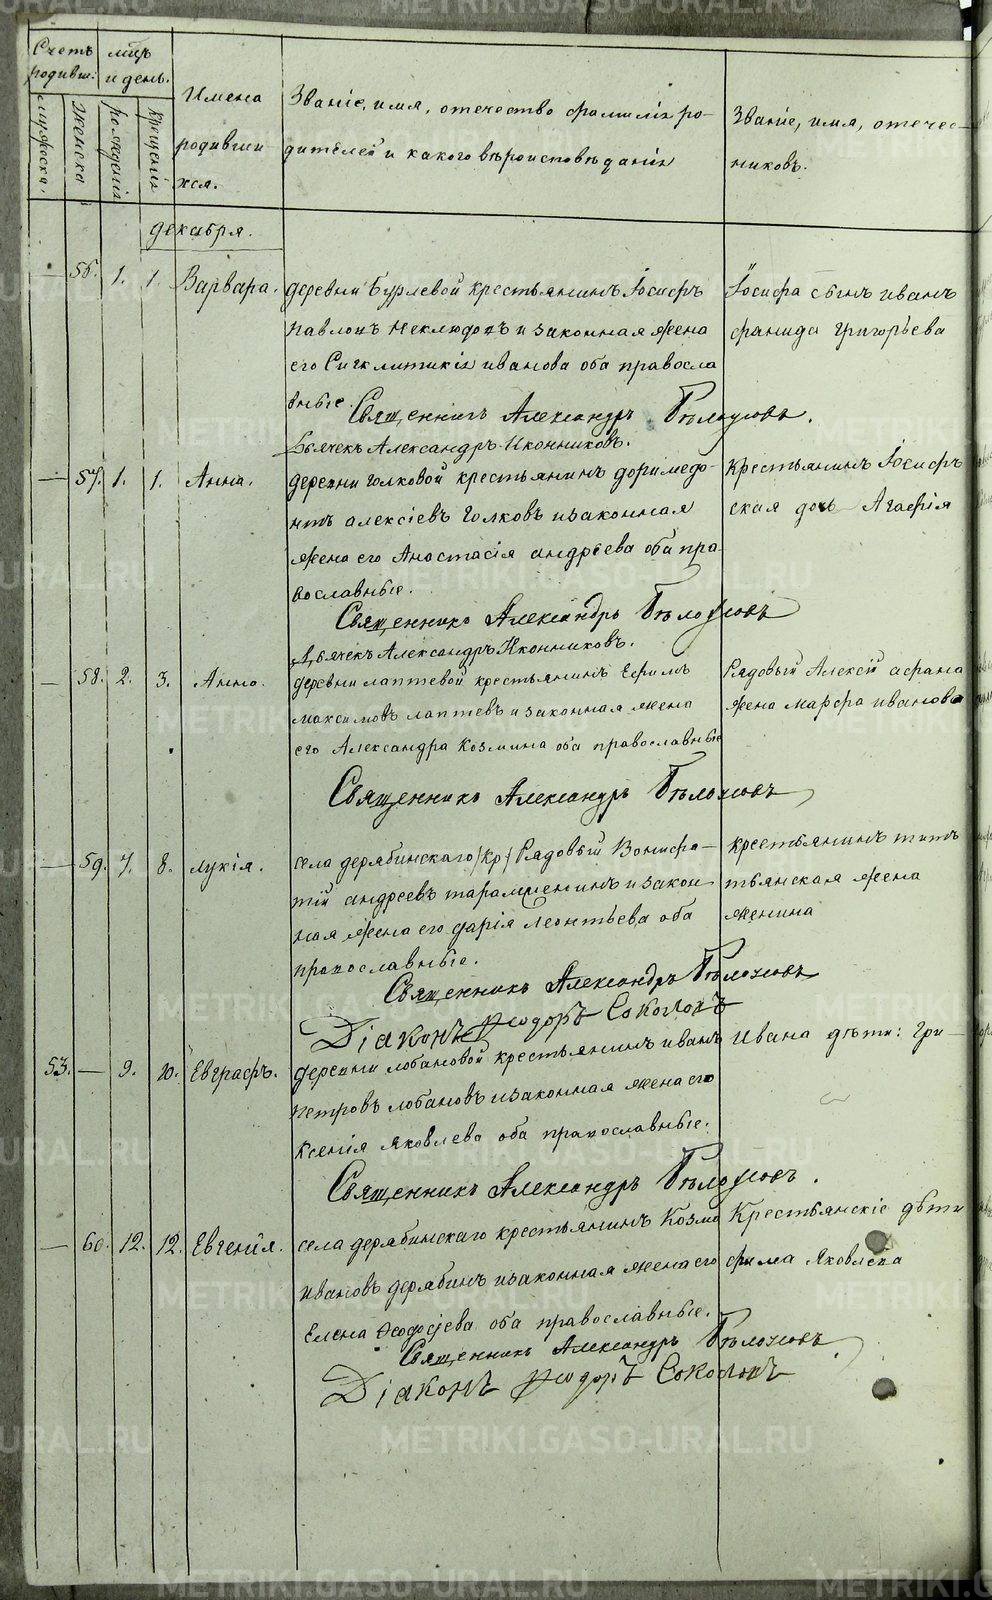 Счетъ родивш:
мѣс. и день.
Имена родивши хся.
Званіе, имя, отечество фамилія ро-
дителей и какого вѣроисповѣданія
Званіе, имя, отечес-
никовъ.
мужеска.
женска
рожденія
крещенія
декабря.
— 56. 1. 1. Варвара. деревни Бурлевой крестьянинъ Іосифъ
Павловъ Неклюдовъ и законная жена
его Сигклитикія иванова оба правосла
вные.
Іосифа сынъ иванъ
фанида григорьева
Священникъ Александръ Бѣлоусовъ.
Дьячекъ Александръ Иконниковъ.
— 57. 1. 1. Анна. деревни голковой крестьянинъ доримедо-
нтъ алексіевъ Голковъ изаконная
жена его Анастасія андрѣева оба пра-
вославные.
Крестьянинъ Іосифъ
ская дочь Агафія
Священникъ Александръ Бѣлоусовъ
Дьячекъ Александръ Иконниковъ.
— 58. 2. 3. Анна. деревни лаптевой крестьянинъ Ефимъ
максимовъ лаптевъ и законная жена
его Александра Козмина оба православные
Рядовый Алексій афана
жена марфа иванова
Священникъ Александръ Бѣлоусовъ
— 59. 7. 8. лукія. села дерябинскаго /кр/ Рядовый Вонифа-
тій андреевъ ная жена его дарія леонтьева оба
православные.
крестьянинъ титъ
тьянская жена
женина
Священникъ Александръ Бѣлоусовъ
Діаконъ Ѳеодоръ Соколовъ
53. — 9. 10. Евграфъ. деревни лобановой крестьянинъ иванъ
петровъ лобановъ изаконная жена его
ксенія яковлева оба православные.
ивана дѣти: гри-
Священникъ Александръ Бѣлоусовъ.
— 60. 12. 12. Евгенія. села дерябинскаго крестьянинъ Козма
ивановъ дерябинъ изаконная жена его
Елена Ѳеодосіева оба православные.
Крестьянскіе дѣти
фима яковлева
Священникъ Александръ Бѣлоусовъ
Діаконъ Ѳеодоръ Соколовъ
METRIKI.GASO-URAL.RU